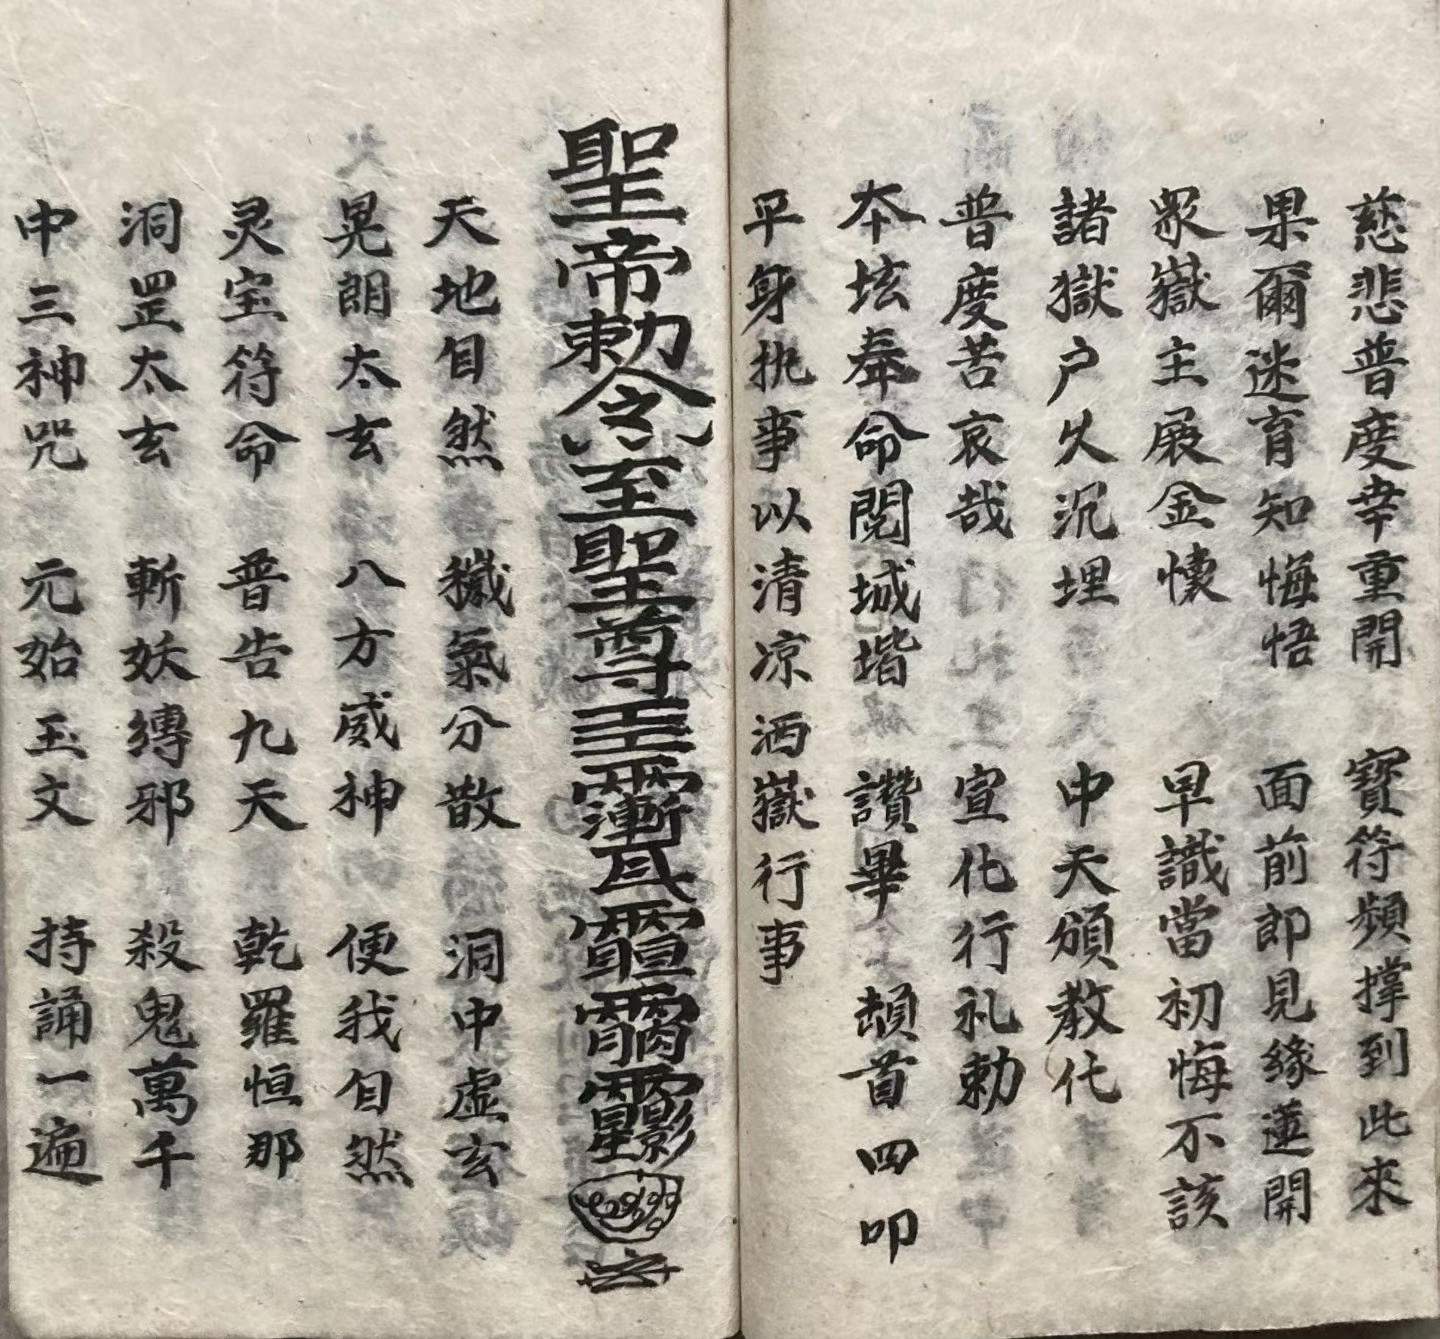 慈悲普度幸重開 寶符頻撑到此來
果爾迷盲知悔悟 面前即見緣蓮開
眾嶽主展金懷 早識當初悔不該
諸獄户久沉埋 中天頒教化
普度苦哀哉 宣化行礼勅
本坛奉命閱城堦 讚畢 頓首四叩
平身执事以清凉洒嶽行事
聖帝勅令至聖尊
天地自然 穢氣分散 洞中虚玄
晃朗太玄 八方威神 便我自然
灵宝符命 普告九天 乾羅恒那
洞罡太玄 斬妖縛邪 殺鬼萬千
中三神咒 元始玉文 持誦一遍